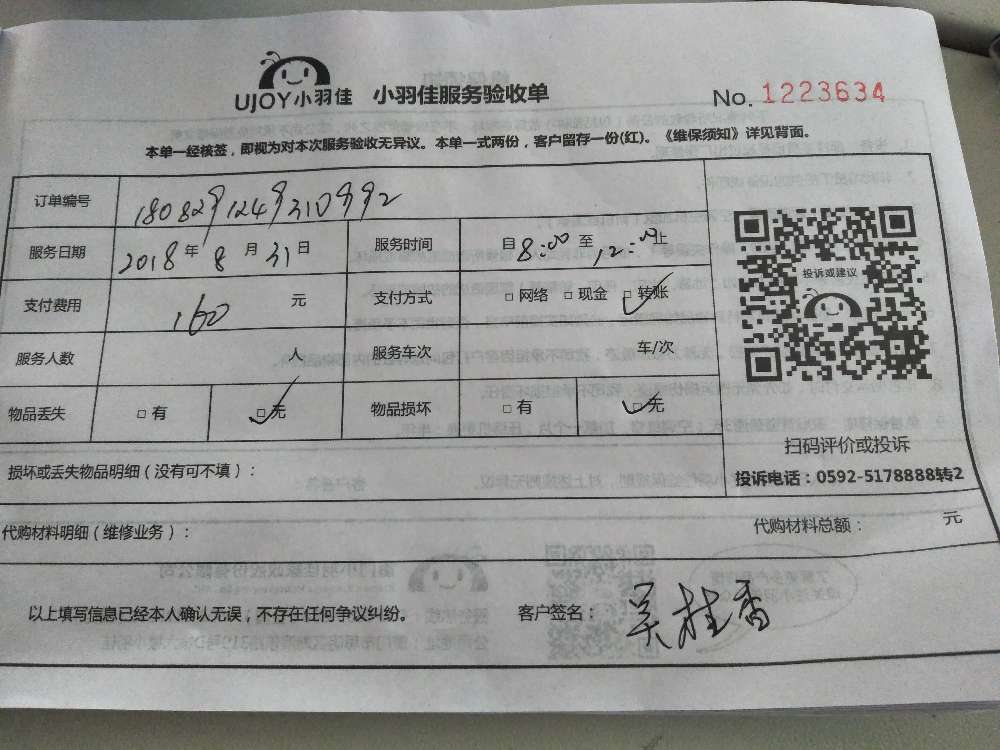 UJOY小羽佳 小羽佳服务验收单 No. 1223634
本单一经核签，即视为对本次服务验收无异议。本单一式两份，客户留存一份(红)。《维保须知》详见背面。
订单编号 1808291249310992
服务日期 2018年8月31日 服务时间 自8:00至12:00止
支付费用 160 元 支付方式 □网络 □现金 ☑转账
投诉或建议
服务人数 人 服务车次 车/次
物品丢失 □有 ☑无 物品损坏 □有 ☑无
扫码评价或投诉
损坏或丢失物品明细（没有可不填）：
投诉电话：0592-5178888转2
代购材料明细（维修业务）： 代购材料总额： 元
以上填写信息已经本人确认无误，不存在任何争议纠纷。 客户签名： 吴桂香